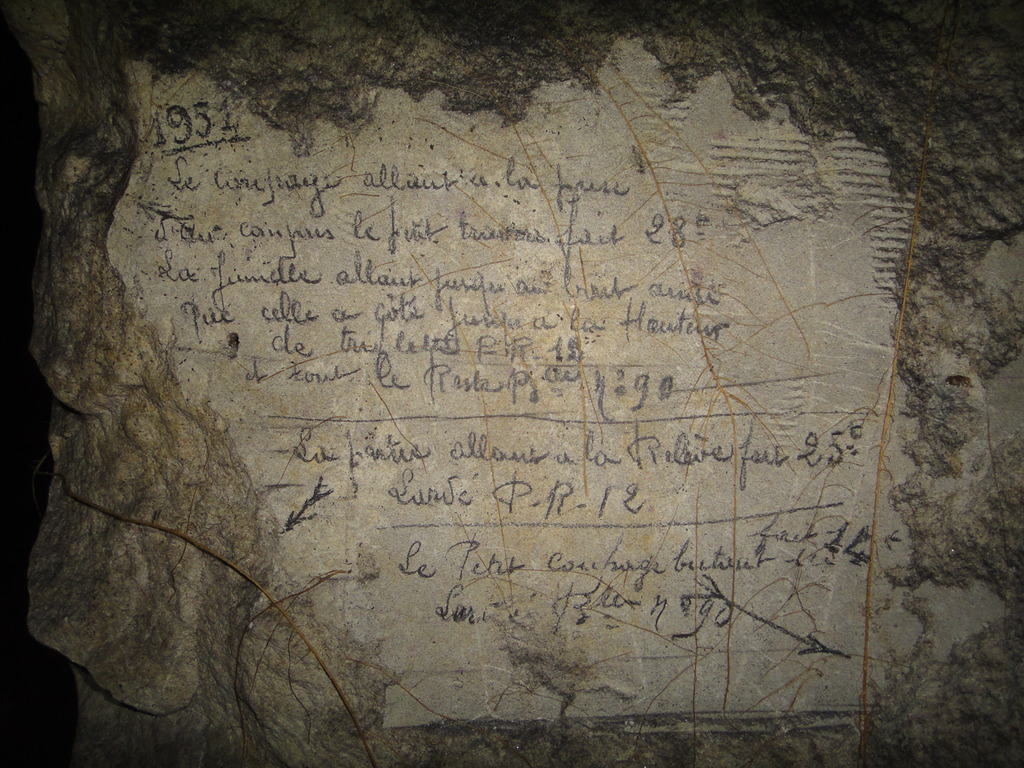 1951
Le coupage allant a la prise
d'air compris le petit travers fait 28
La jumelle allant jusqu'au bout ainsi
que celle a côté jusqu'a la Hauteur
de P.R. 12
et tout le Reste n° 90
La allant a la Relève fait 25
Lardé P.R. 12
Le Petit coupage butant fait
n° 90